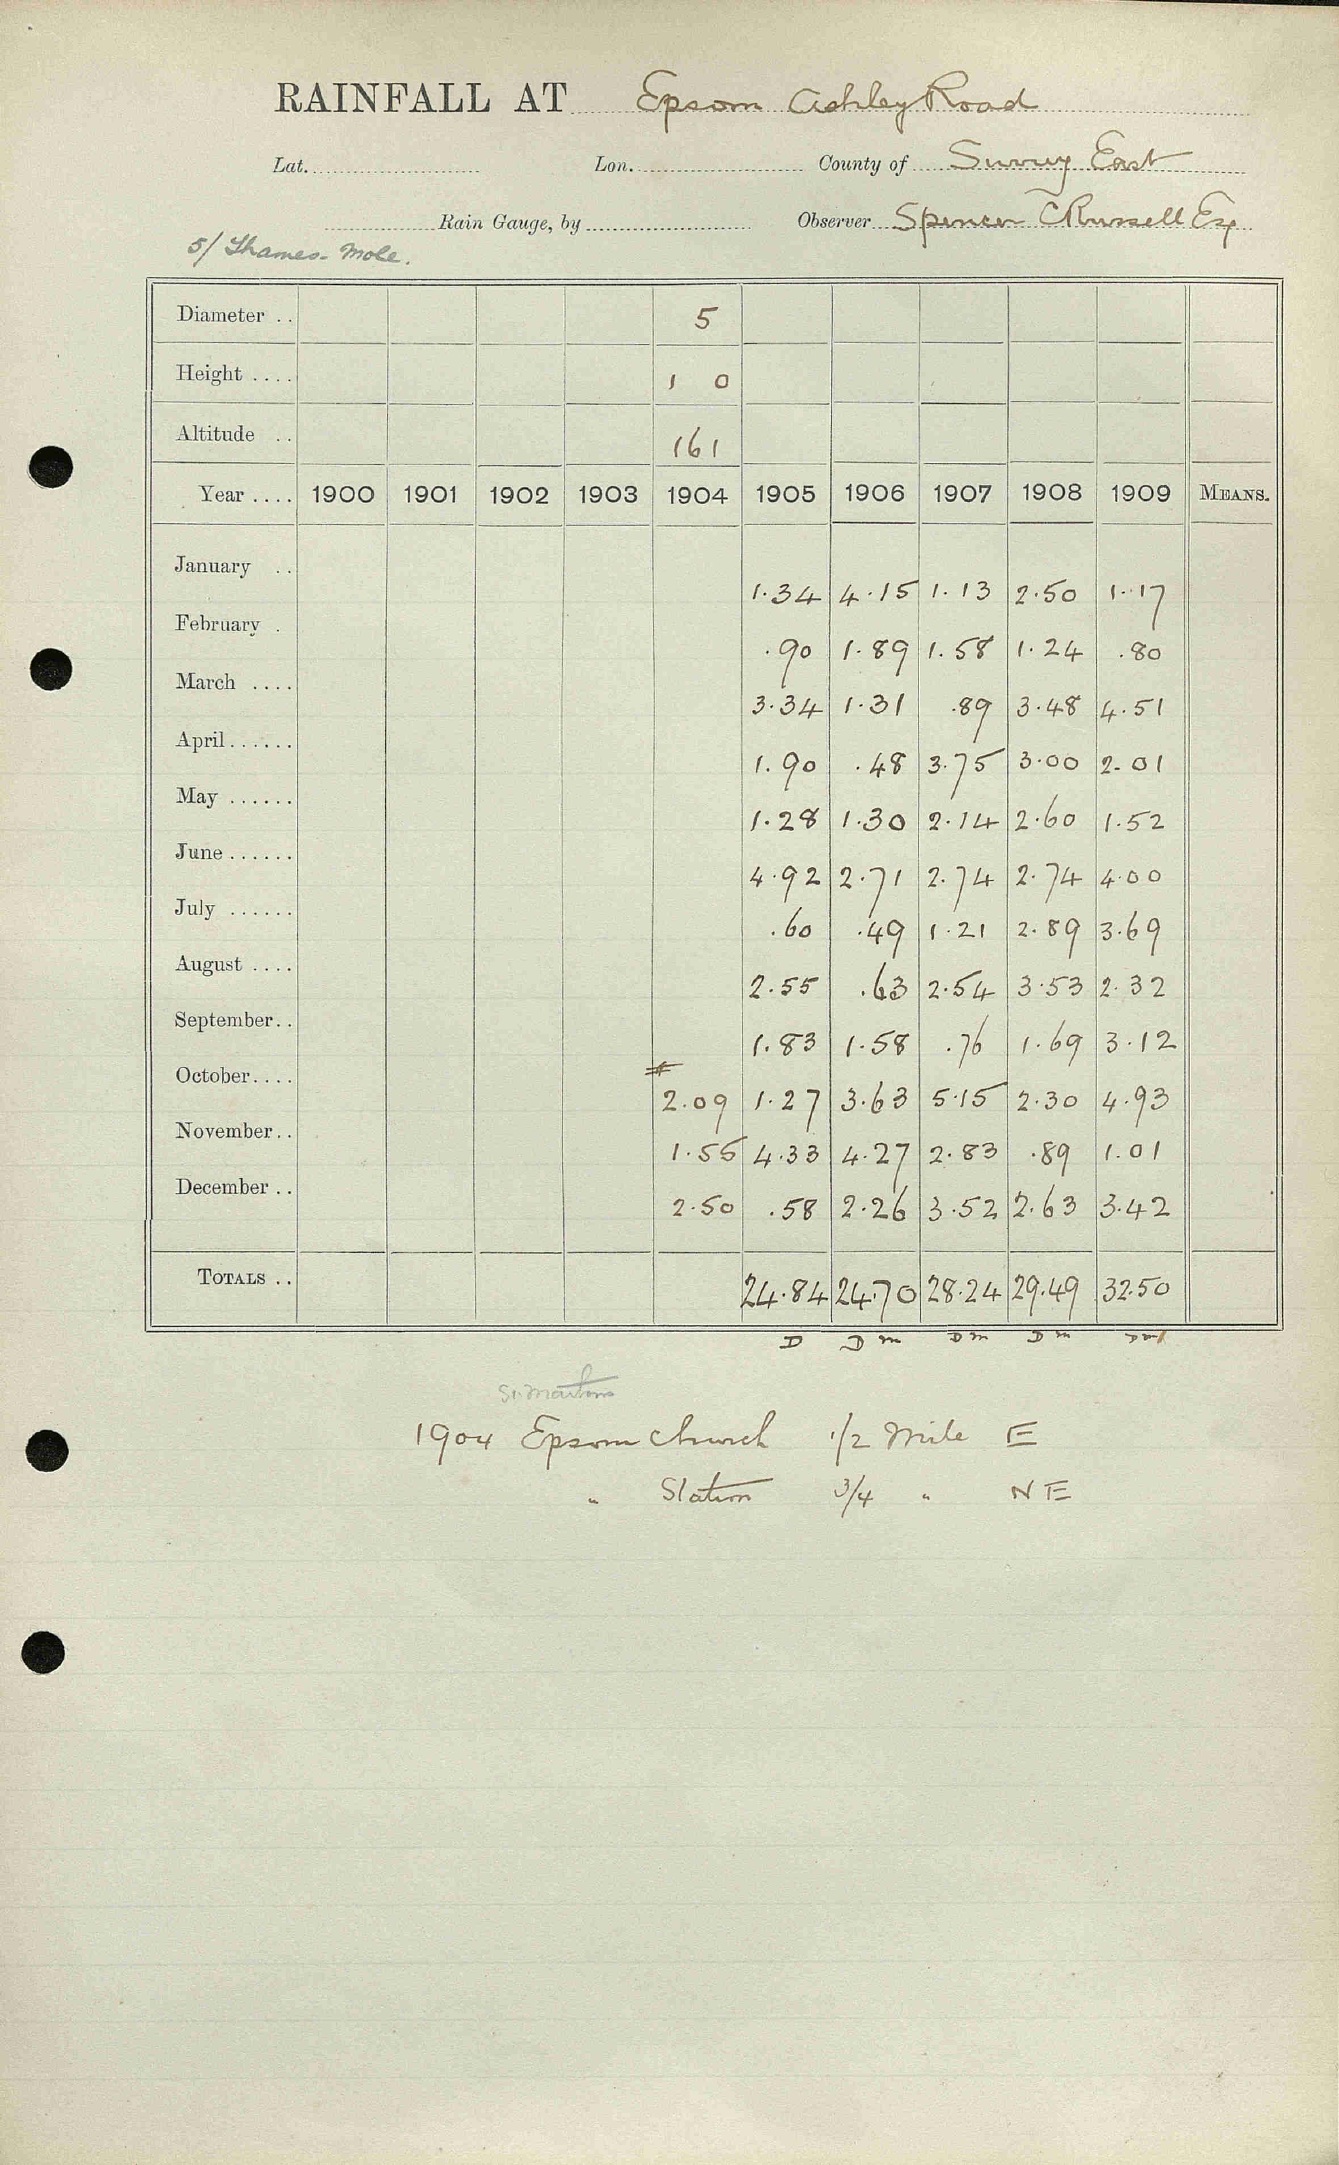 RAINFALL AT Epsom Ashley Road
Lat. Lon. County of Surrey East
Rain Gauge, by Observer Spencer C Russell Esq
5/ Thames - Mole.
Diameter . . 5
Height . . . . 1 0
Altitude . . 161
Year . . . . 1900 1901 1902 1903 1904 1905 1906 1907 1908 1909 MEANS.
January . . 1.34 4.15 1.13 2.50 1.17
February . .90 1.89 1.58 1.24 .80
March . . . . 3.34 1.31 .89 3.48 4.51
April . . . . . . 1.90 .48 3.75 3.00 2.01
May . . . . . . 1.28 1.30 2.14 2.60 1.52
June . . . . . . 4.92 2.71 2.74 2.74 4.00
July . . . . . . .60 .49 1.21 2.89 3.69
August . . . . 2.55 .63 2.54 3.53 2.32
September . . 1.83 1.58 .76 1.69 3.12
October . . . . 2.09 1.27 3.63 5.15 2.30 4.93
November . . 1.55 4.33 4.27 2.83 .89 1.01
December . . 2.50 .58 2.26 3.52 2.63 3.42
TOTALS . . 24.84 24.70 28.24 29.49 32.50
D D m D m D m
St. Martins
1904 Epsom Church 1/2 Mile E
" Station 3/4 " NE